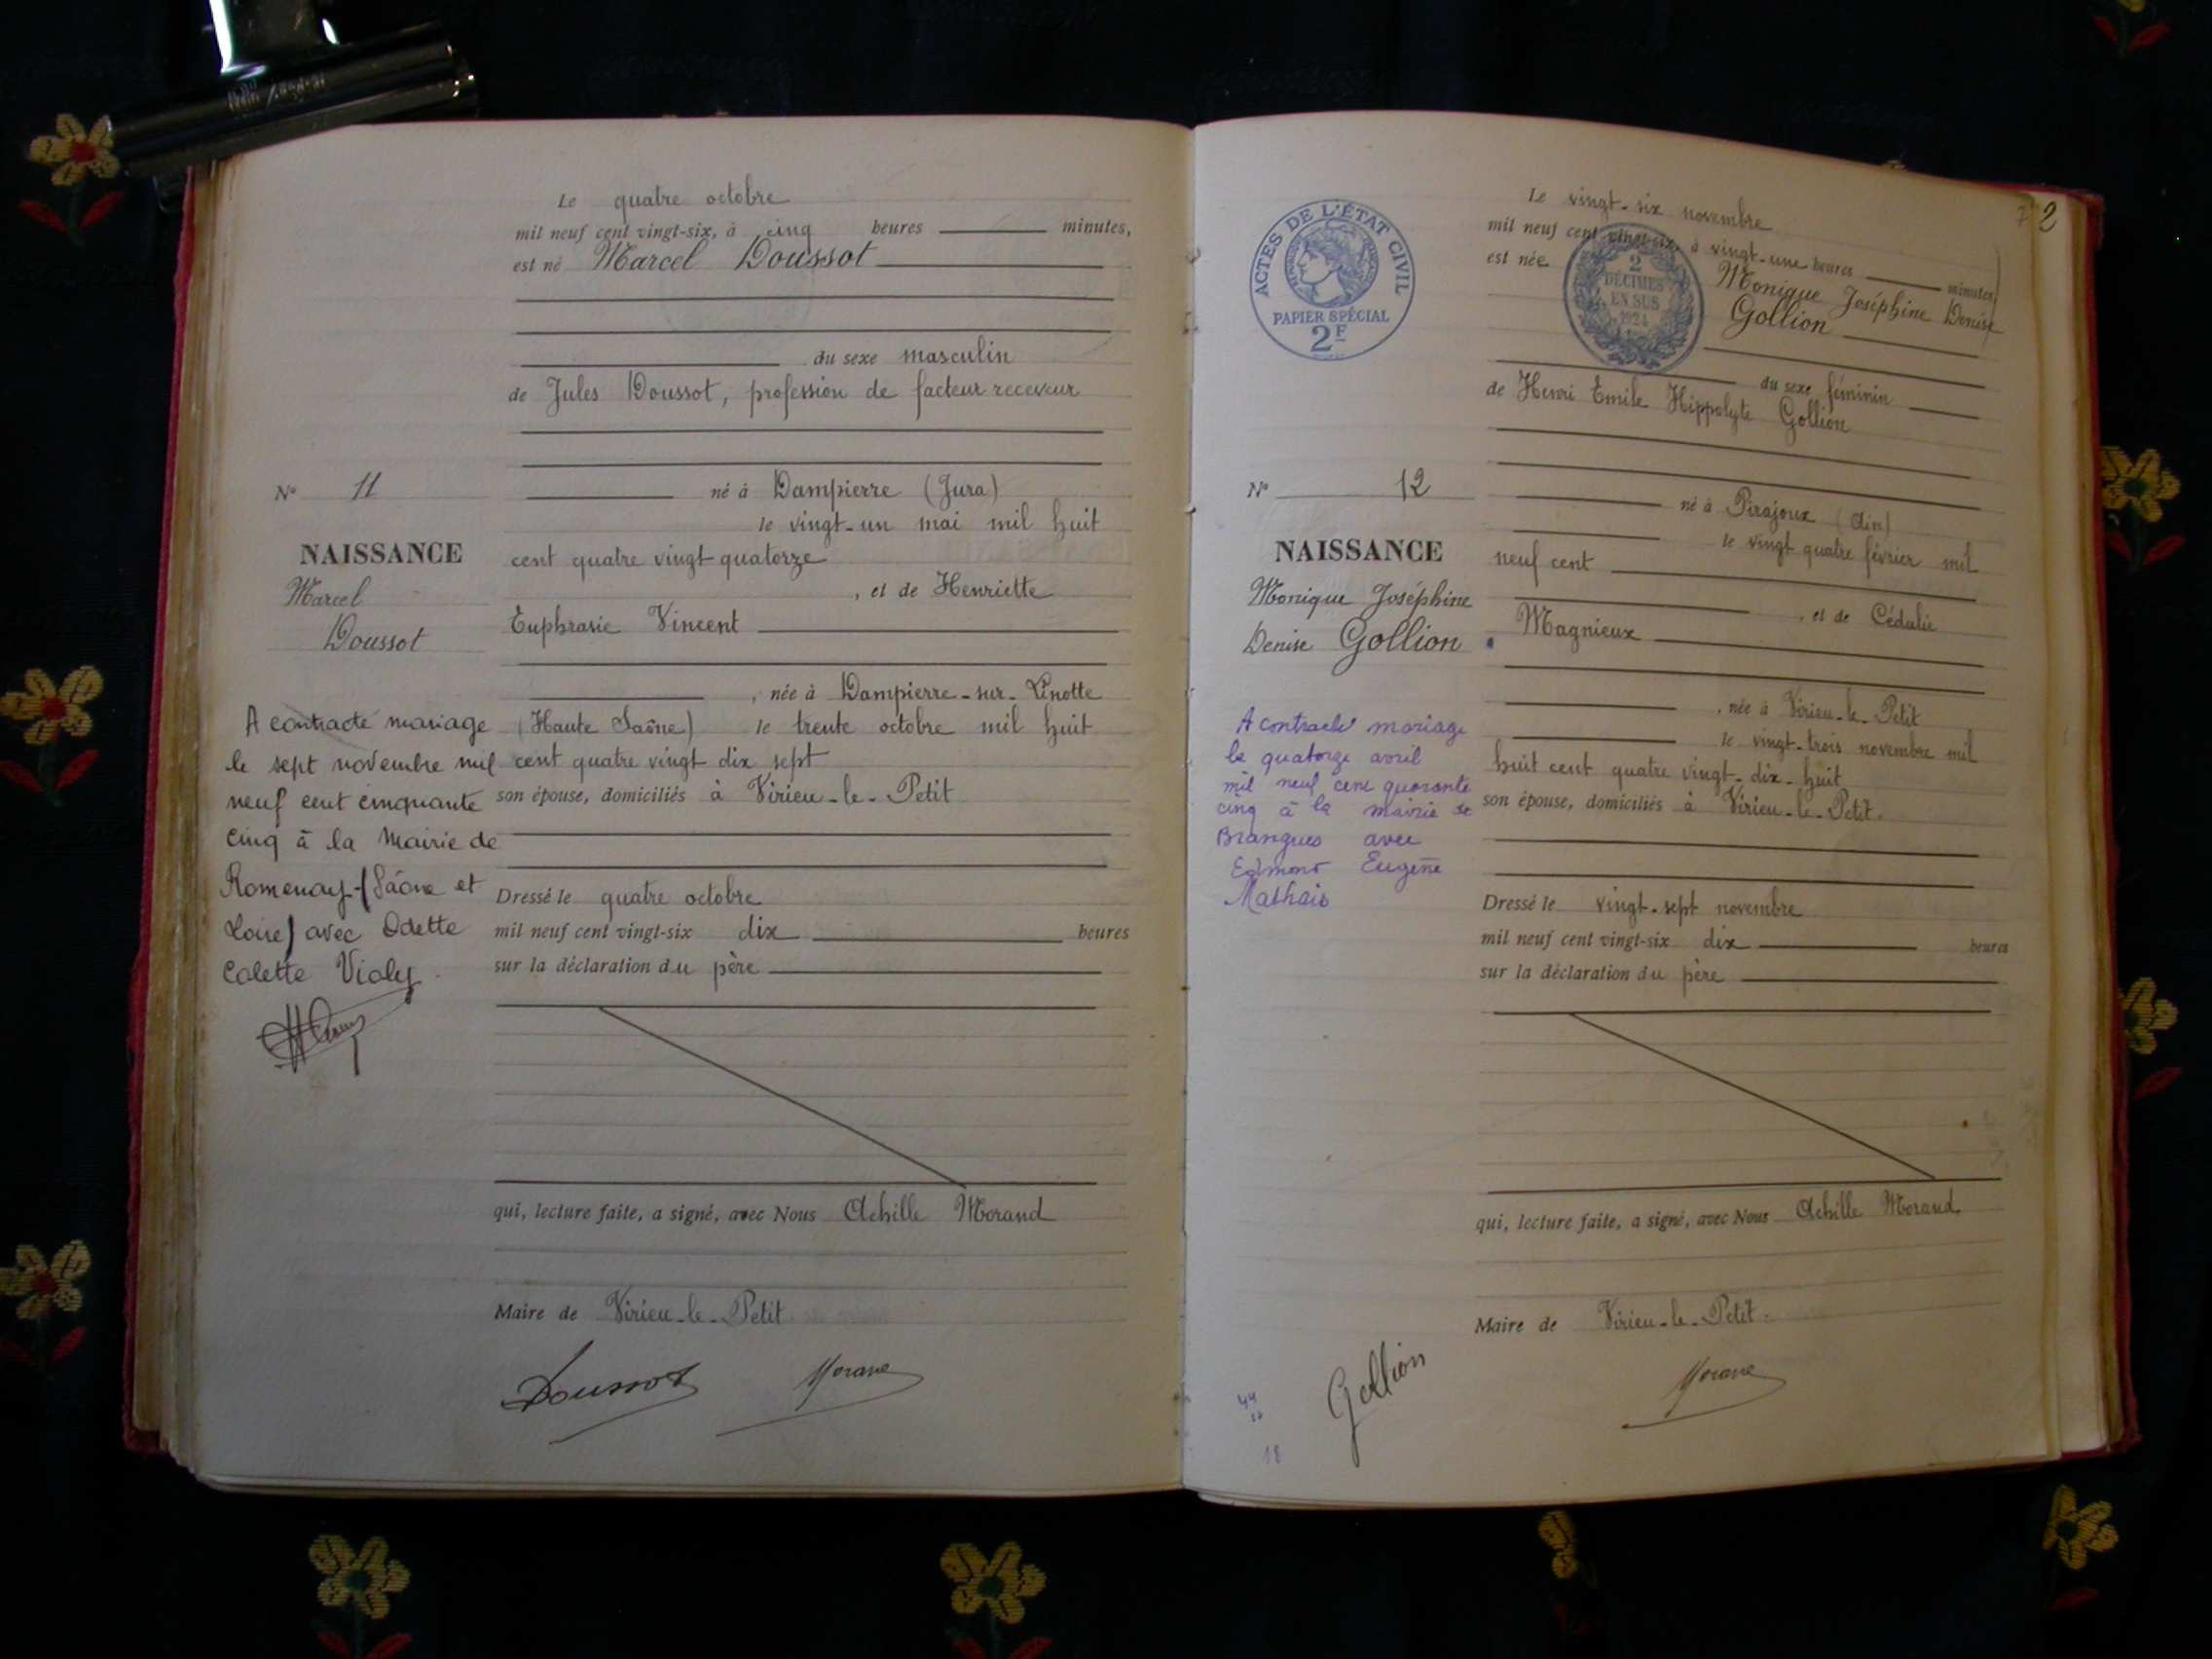 Le quatre octobre
mil neuf cent vingt-six, à cinq heures minutes,
est né Marcel Doussot
du sexe masculin
de Jules Doussot, profession de facteur receveur
né à Dampierre (Jura)
le vingt-un mai mil huit
cent quatre vingt quatorze
, et de Henriette
Euphrasie Vincent
, née à Dampierre-sur-Linotte
(Haute Saône) le trente octobre mil huit
cent quatre vingt dix sept
son épouse, domiciliés à Virieu-le-Petit
Dressé le quatre octobre
mil neuf cent vingt-six dix heures
sur la déclaration du père
qui, lecture faite, a signé, avec Nous Achille Morand
Maire de Virieu-le-Petit
Doussot Morand
N° 11
NAISSANCE
Marcel
Doussot
A contracté mariage
le sept novembre mil
neuf cent cinquante
cinq à la Mairie de
Romenay (Sâone et
Loire) avec Odette
Colette Vialy.
2
ACTES DE L'ÉTAT CIVIL
PAPIER SPÉCIAL
2F
2
DÉCIMES
EN SUS
1924
Le vingt-six novembre
mil neuf cent vingt-six, à vingt-une heures minutes
est née Monique Joséphine Denise
Gollion
du sexe féminin
de Henri Emile Hippolyte Gollion
né à Pirajoux (Ain)
le vingt quatre février mil
neuf cent
, et de Cédulie
Magnieux
, née à Virieu-le-Petit
le vingt-trois novembre mil
huit cent quatre vingt-dix-huit
son épouse, domiciliés à Virieu-le-Petit.
Dressé le vingt-sept novembre
mil neuf cent vingt-six dix heures
sur la déclaration du père
qui, lecture faite, a signé, avec Nous Achille Morand.
Maire de Virieu-le-Petit.
Gollion Morand
N° 12
NAISSANCE
Monique Joséphine
Denise Gollion
A contracté mariage
le quatorze avril
mil neuf cent quarante
cinq à la mairie de
Brangues avec
Edmond Eugène
Mathais
44
18